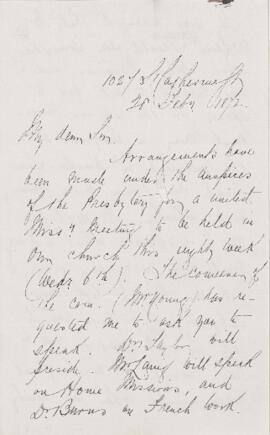 1027 St Catherine St
28 Feby
My dear Sir.
Arrangements have
been made under the auspices
of the Presbytery for a united
Miss'y Meeting to be held in
our church this night week
(Wedy 6th). The convener of
the com. (Mr Young) has re-
quested me to ask you to
speak. Dr Taylor will
preside. Mr will speak
on Home Missions, and
Dr Burns on French Work.